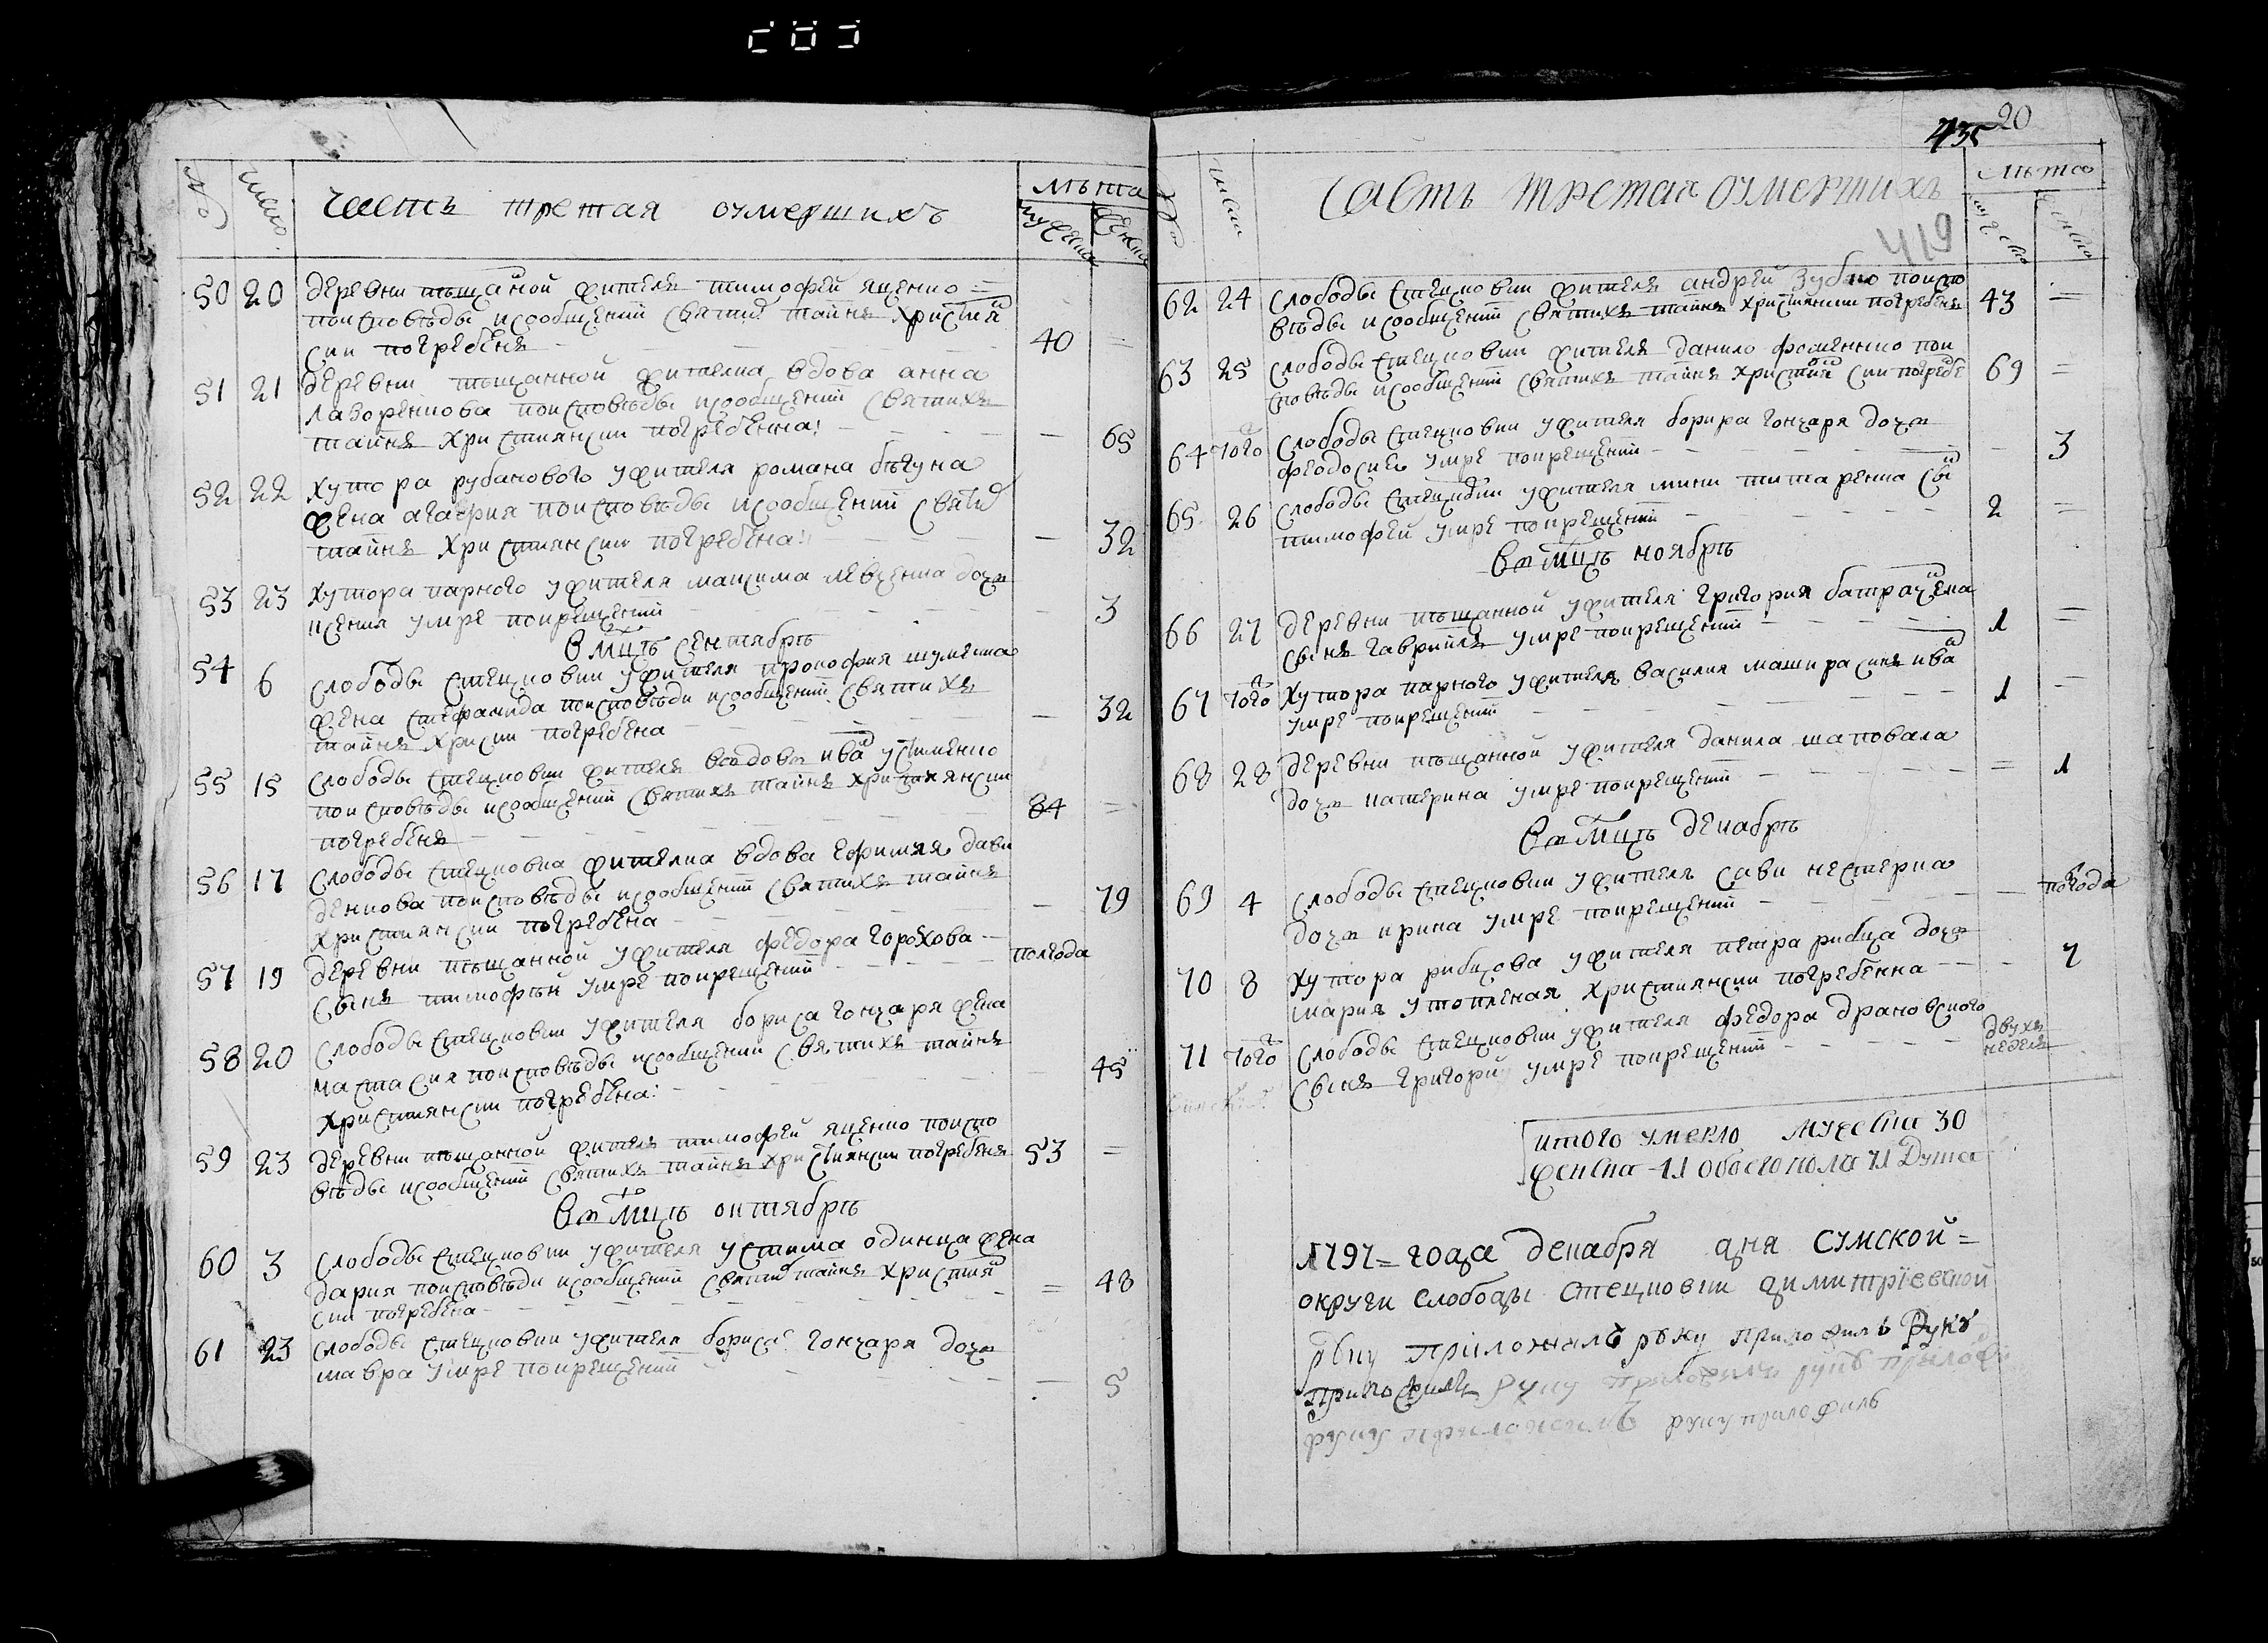 № число Часть третая о умершихъ лѣта мужеска женска
50 20 деревни пѣщаной жителъ тимофей яценко =
поисповѣды исообщений святих тайнъ христиан
ски погребенъ 40 =
51 21 деревни пѣщанной жителка вдова анна
лазоренкова поисповѣды исообщений святихъ
тайнъ християнски погребенна — 65
52 22 хутора рубанового ужителя романа бѣгуна
жена агафия поисповѣды исообщений святих
тайнъ християнски погребена — 32
53 23 хутора парного ужителя максима левченка дочъ
ксения умре покрещений — 3
В мцъ сентябръ
54 6 слободы стецковки ужителя прокофия шуменка
жена стефанида поисповѣди исообщений святихъ
тайнъ хриски погребена — 32
55 15 слободы стецковки жителъ вдовъ иван устименко
поисповѣды исообщений святихъ тайнъ християнски
погребенъ 84 =
56 17 слободы стецковка жителка вдова дави
денкова поисповѣды исообщений святихъ тайнъ
християнски погребена — 79
57 19 деревни пѣщанной ужителя федора горохова —
сынъ тимофѣй умре покрещений полгода
58 20 слободы стецковки ужителя бориса гончаря жена
настасия поисповѣды исообщений святихъ тайнъ
християнски погребена — 45
59 23 деревни пѣщанной жителъ тимофей яценко поиспо
вѣды исообщений святихъ тайнъ християнски погребенъ 53 =
Въ мцъ октябръ
60 3 слободы стецковки ужителя устима одинца жена
дария поисповѣди исообщений святих тайнъ християн
ски погребена = 48
61 23 слободы стецковки ужителя бориса гончаря дочъ
мавра умре покрещений — 5
435 20
№ число Часть третая о умершихъ лѣта мужеска женска
419
62 24 слободы стецковки жителъ андрей зубко поиспо
вѣды исообщений святихъ тайнъ християнски погребенъ 43 =
63 25 слободы стецковки жителъ данило фоменко пои
сповѣды исообщений святихъ тайнъ християн ски погребе 69 =
64 того слободы стецковки ужителя гончаря дочъ
феодосия умре покрещений — 3
65 26 слободы стецковки ужителя мики титаренка сын
тимофей умре покрещений 2 =
Въ мцъ ноябръ
66 27 деревни пѣщанной ужителя григория батраченка
сынъ гаврийлъ умре покрещений 1 =
67 того хутора парного ужителя василия машира синъ иван
умре покрещений 1 =
68 28 деревни пѣщанной ужителя данила шаповала
дочъ катерина умре покрещений = 1
Въ мцъ декабръ
69 4 слободы стецковки ужителя сави нестерка
дочъ ирина умре покрещений — полгода
70 8 хутора рибцова ужителя петра рибца дочъ
мария утопленая християнски погребенна — 7
71 того слободы стецковки ужителя федора драновского двухъ
сынъ григорий умре покрещений неделъ
итого умерло мужеска 30
женска 41 обоего пола 71 душа
1797 = года декабря дня сумской =
округи слободы стецковки димитрїевской
руку приложилъ руку приложилъ руку
приложилъ руку приложилъ руку приложи
руку приложилъ руку приложилъ